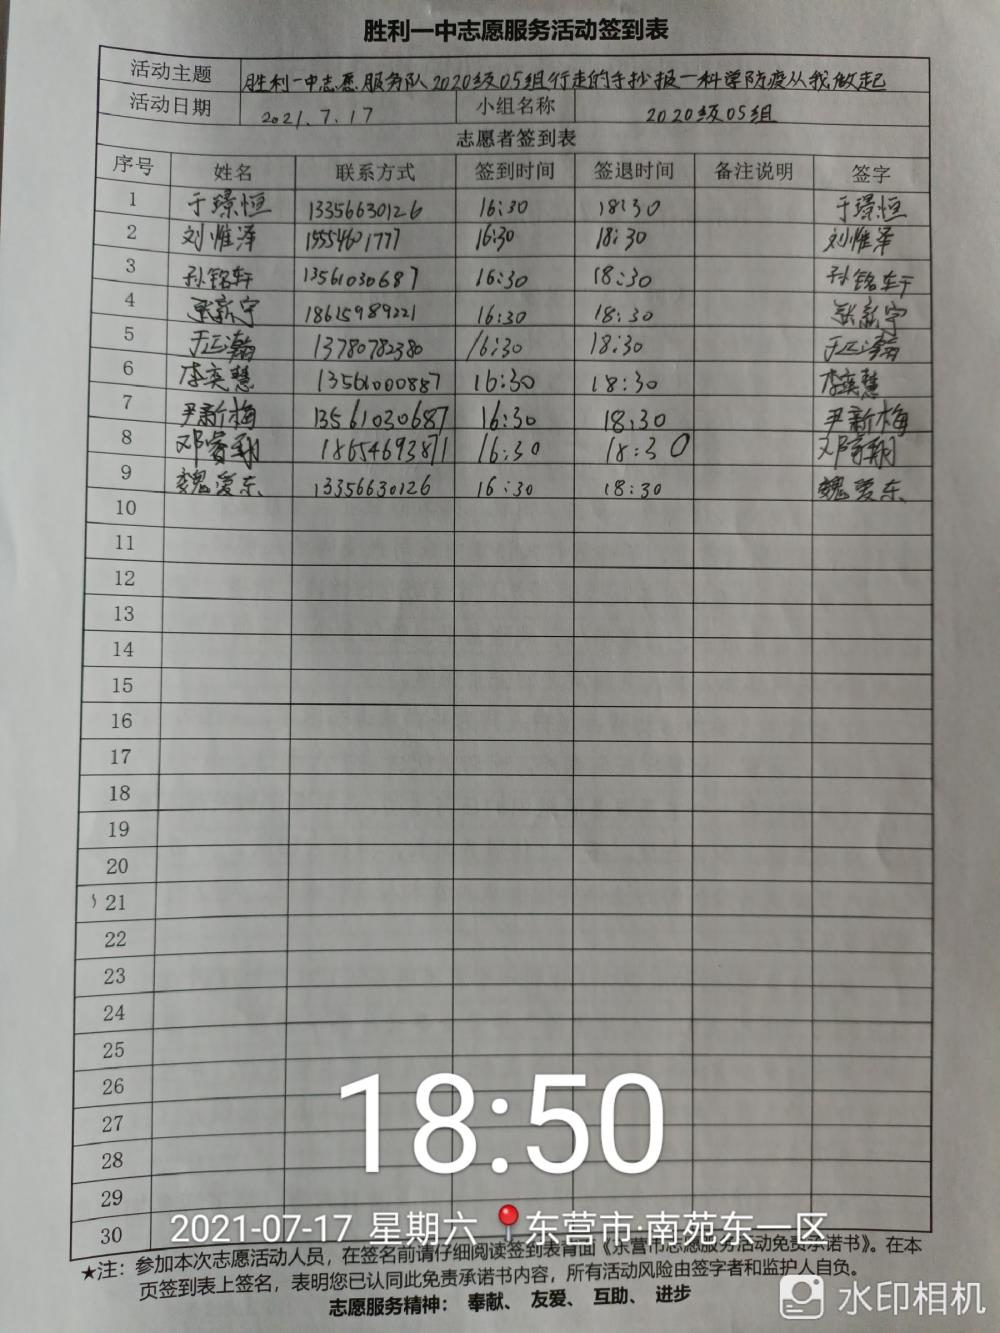 胜利一中志愿服务活动签到表
活动主题 胜利一中志愿服务队2020级05组行走的手抄报—科学防疫从我做起
活动日期 2021.7.17 小组名称 2020级05组
志愿者签到表
序号 姓名 联系方式 签到时间 签退时间 备注说明 签字
1 于璟恒 13356630126 16:30 18:30 于璟恒
2 刘惟泽 15554601777 16:30 18:30 刘惟泽
3 孙铭轩 13561030687 16:30 18:30 孙铭轩
4 张新宇 18615989221 16:30 18:30 张新宇
5 于正瀚 13780782380 16:30 18:30 于正瀚
6 李奕慧 13561000887 16:30 18:30 李奕慧
7 尹新梅 13561030687 16:30 18:30 尹新梅
8 邓睿翔 18654693871 16:30 18:30 邓睿翔
9 魏爱东 13356630126 16:30 18:30 魏爱东
10
11
12
13
14
15
16
17
18
19
20
21
22
23
24
25
26
27
28
29
30
18:50
2021-07-17 星期六 东营市·南苑东一区
★注：参加本次志愿活动人员，在签名前请仔细阅读签到表背面《东营市志愿服务活动免责承诺书》。在本
页签到表上签名，表明您已认同此免责承诺书内容，所有活动风险由签字者和监护人自负。
志愿服务精神： 奉献、 友爱、 互助、 进步
水印相机